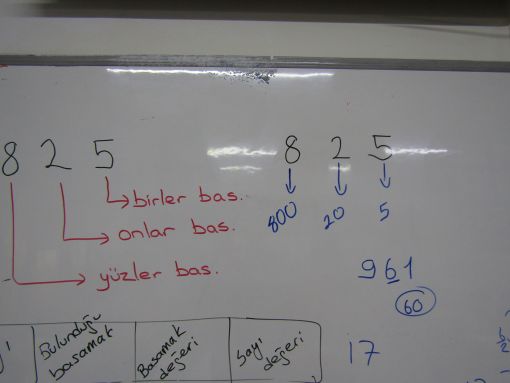 8 2 5
birler bas.
onlar bas.
yüzler bas.
8 2 5
800 20 5
961
60
Bulunduğu basamak
Basamak değeri
Sayı değeri
17